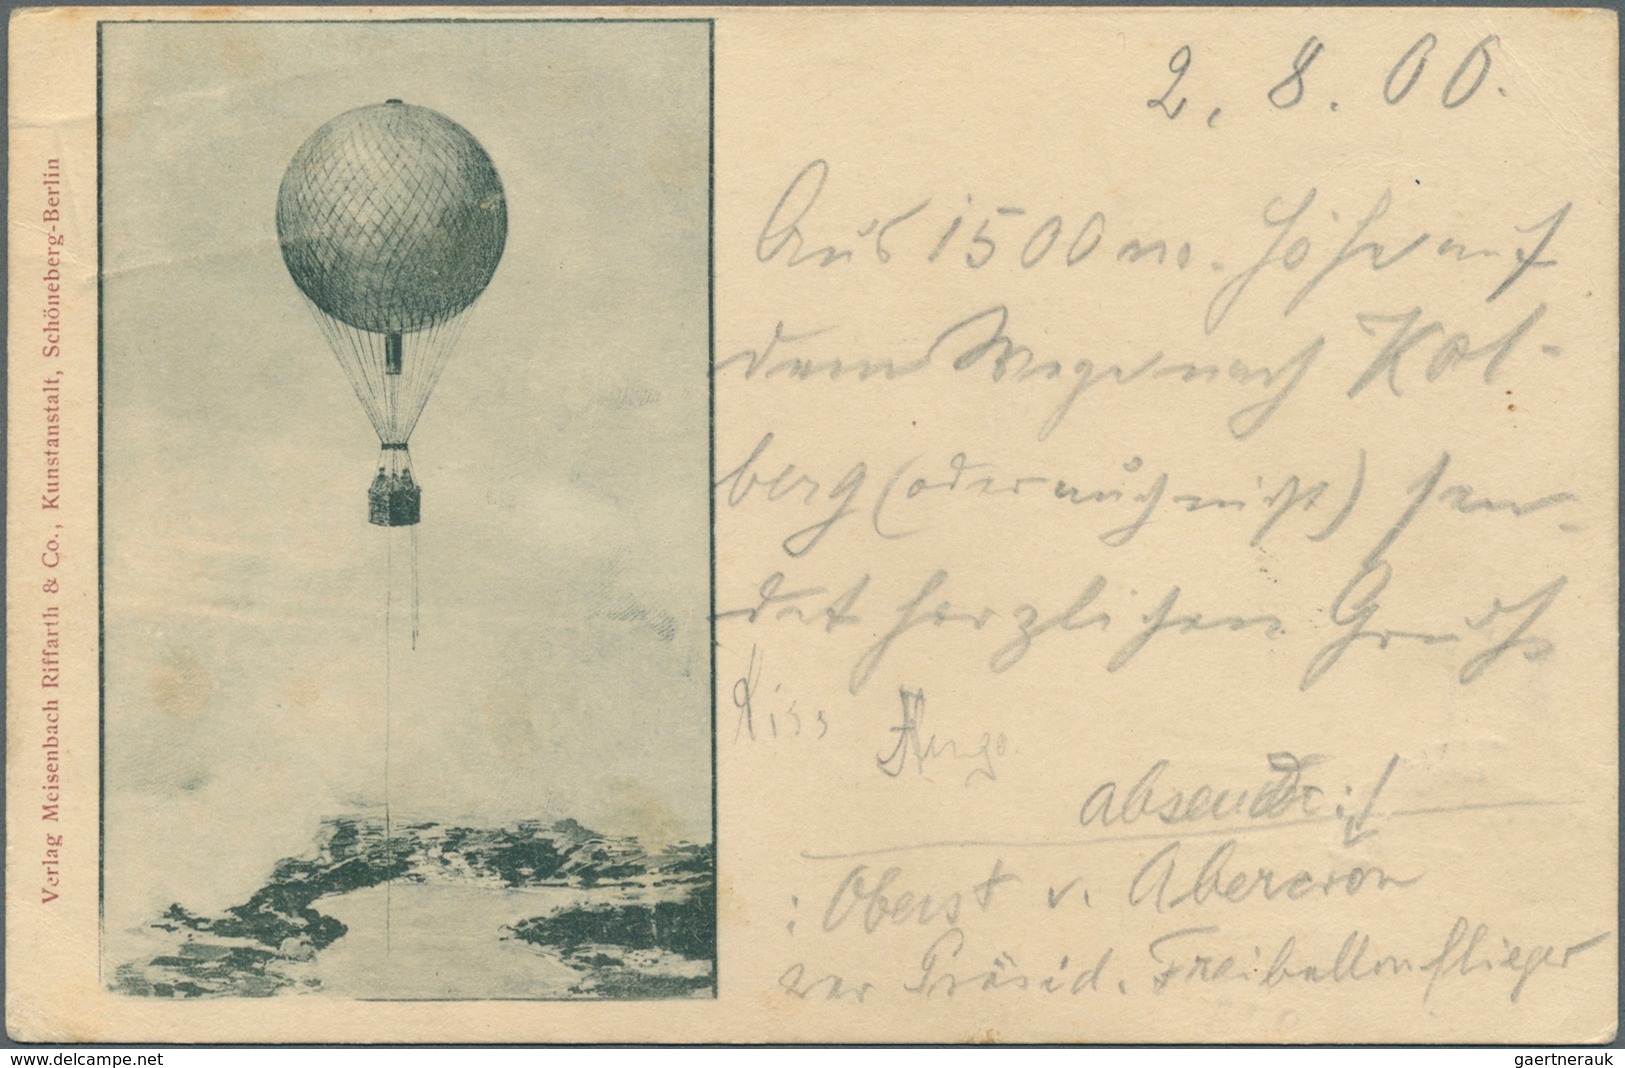 Verlag Meisenbach Riffarth & Co., Kunstanstalt, Schöneberg-Berlin
2. 8. 00.
Aus 1500 m. Höhe auf
dem Wege nach Kol-
berg (oder auch nicht) sen-
det herzlichen Gruß
Hugo.
absender:
: Oberst v. Abercron
war Präsid. Freiballonflieger
www.delcampe.net
gaertnerauk